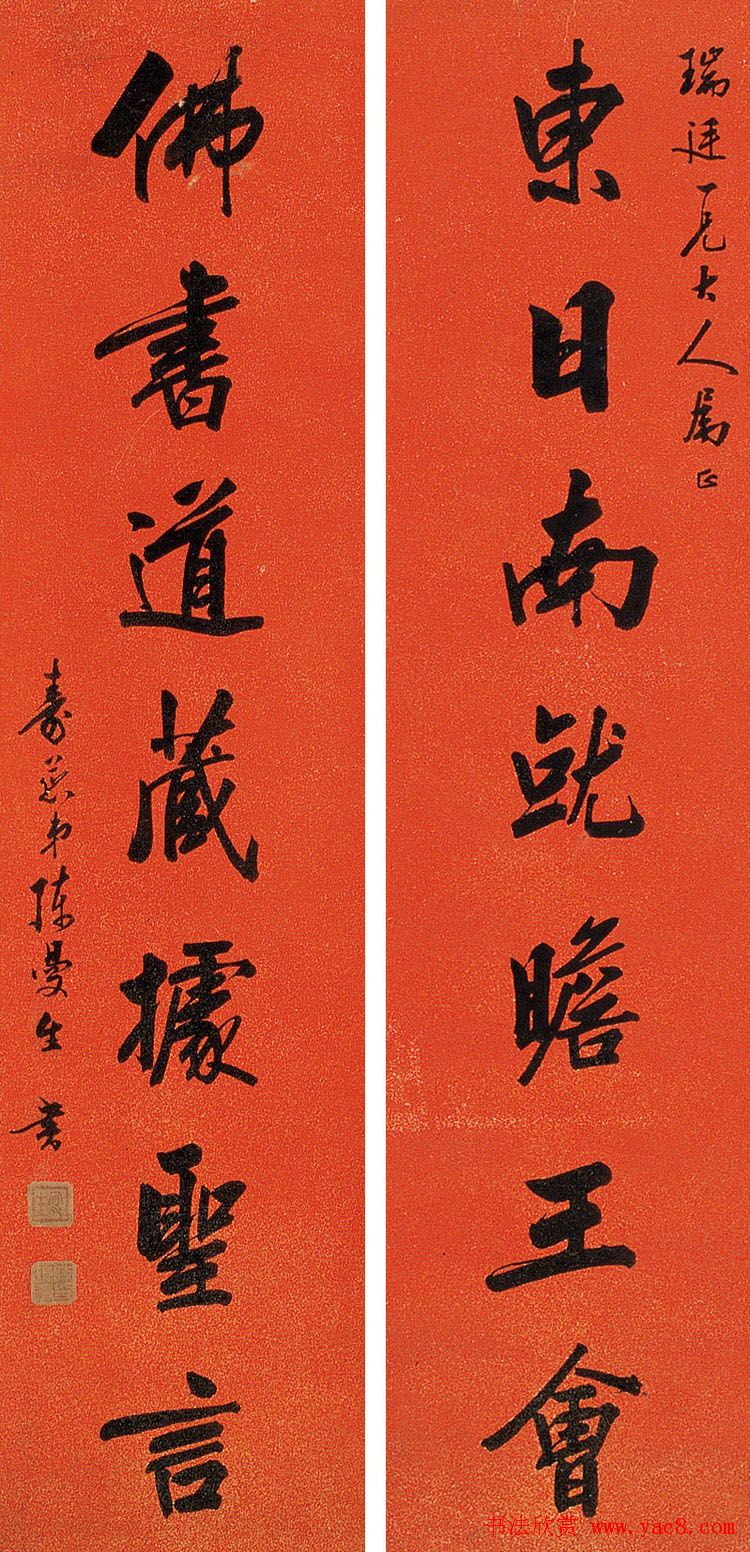 瑞廷一兄大人属正
東日南就瞻王會
佛書道藏據聖言
弟陳曼生書
书法欣赏 www.yac8.com